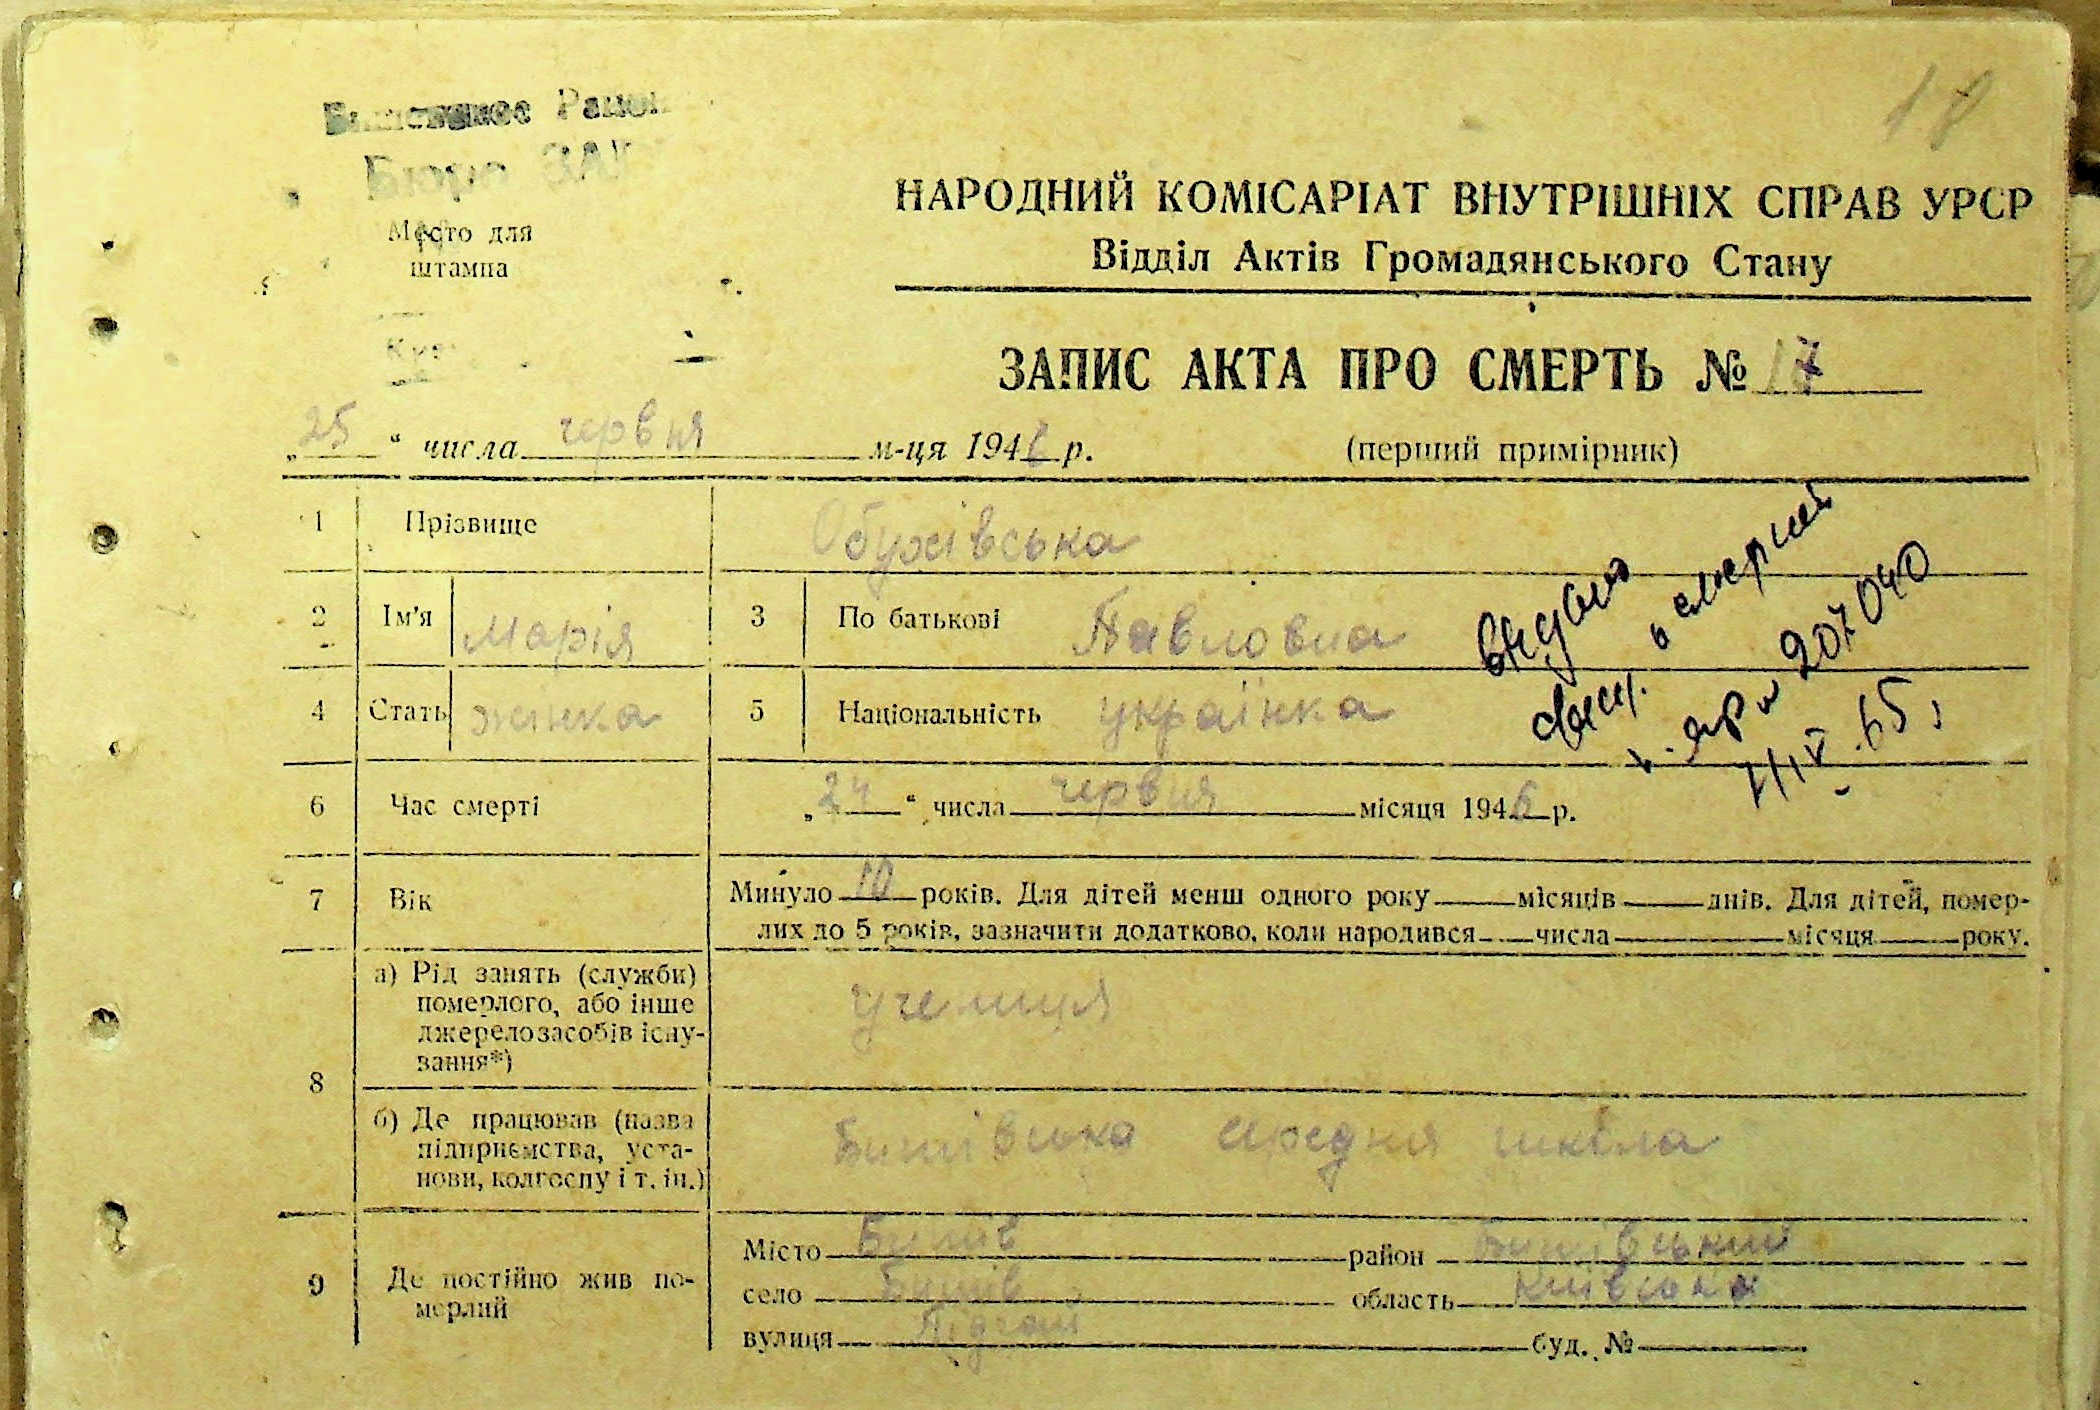 18
Бюро ЗАГ
Место для
штампа
НАРОДНИЙ КОМІСАРІАТ ВНУТРІШНІХ СПРАВ УРСР
Відділ Актів Громадянського Стану
ЗАПИС АКТА ПРО СМЕРТЬ № 17
„25“ числа червня м-ця 1946 р.
(перший примірник)
1 Прізвище Обухівська
2 Ім'я Марія 3 По батькові Павловна
4 Стать жінка 5 Національність українка
видано
свид. о смерти
207040
6 Час смерті „24“ числа червня місяця 1946 р.
7 Вік Минуло 10 років. Для дітей менш одного року місяців днів. Для дітей, помер-
лих до 5 років, зазначити додатково, коли народився числа місяця року.
8 а) Рід занять (служби)
померлого, або інше
джерело засобів існу-
вання*)
учениця
б) Де працював (назва
підприємства, уста-
нови, колгоспу і т. ін.)
Бишівська середня школа
9 Де постійно жив по-
мерлий
Місто Бишів район Бишівський
село Бишів область Київська
вулиця буд. №